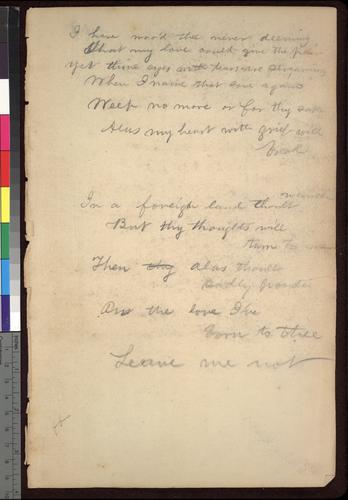 I have woo'd the never deeming
That my love could give the pain
Yet thine eyes with tears are streaming
When I name that one again
Weep no more or for thy sake
Alas my heart with grief will
break
In a foreign land thoult wander
But thy thoughts will
turn to me
Then thy Alas thoult
sadly ponder
On the love I've
born to thee
Leave me not